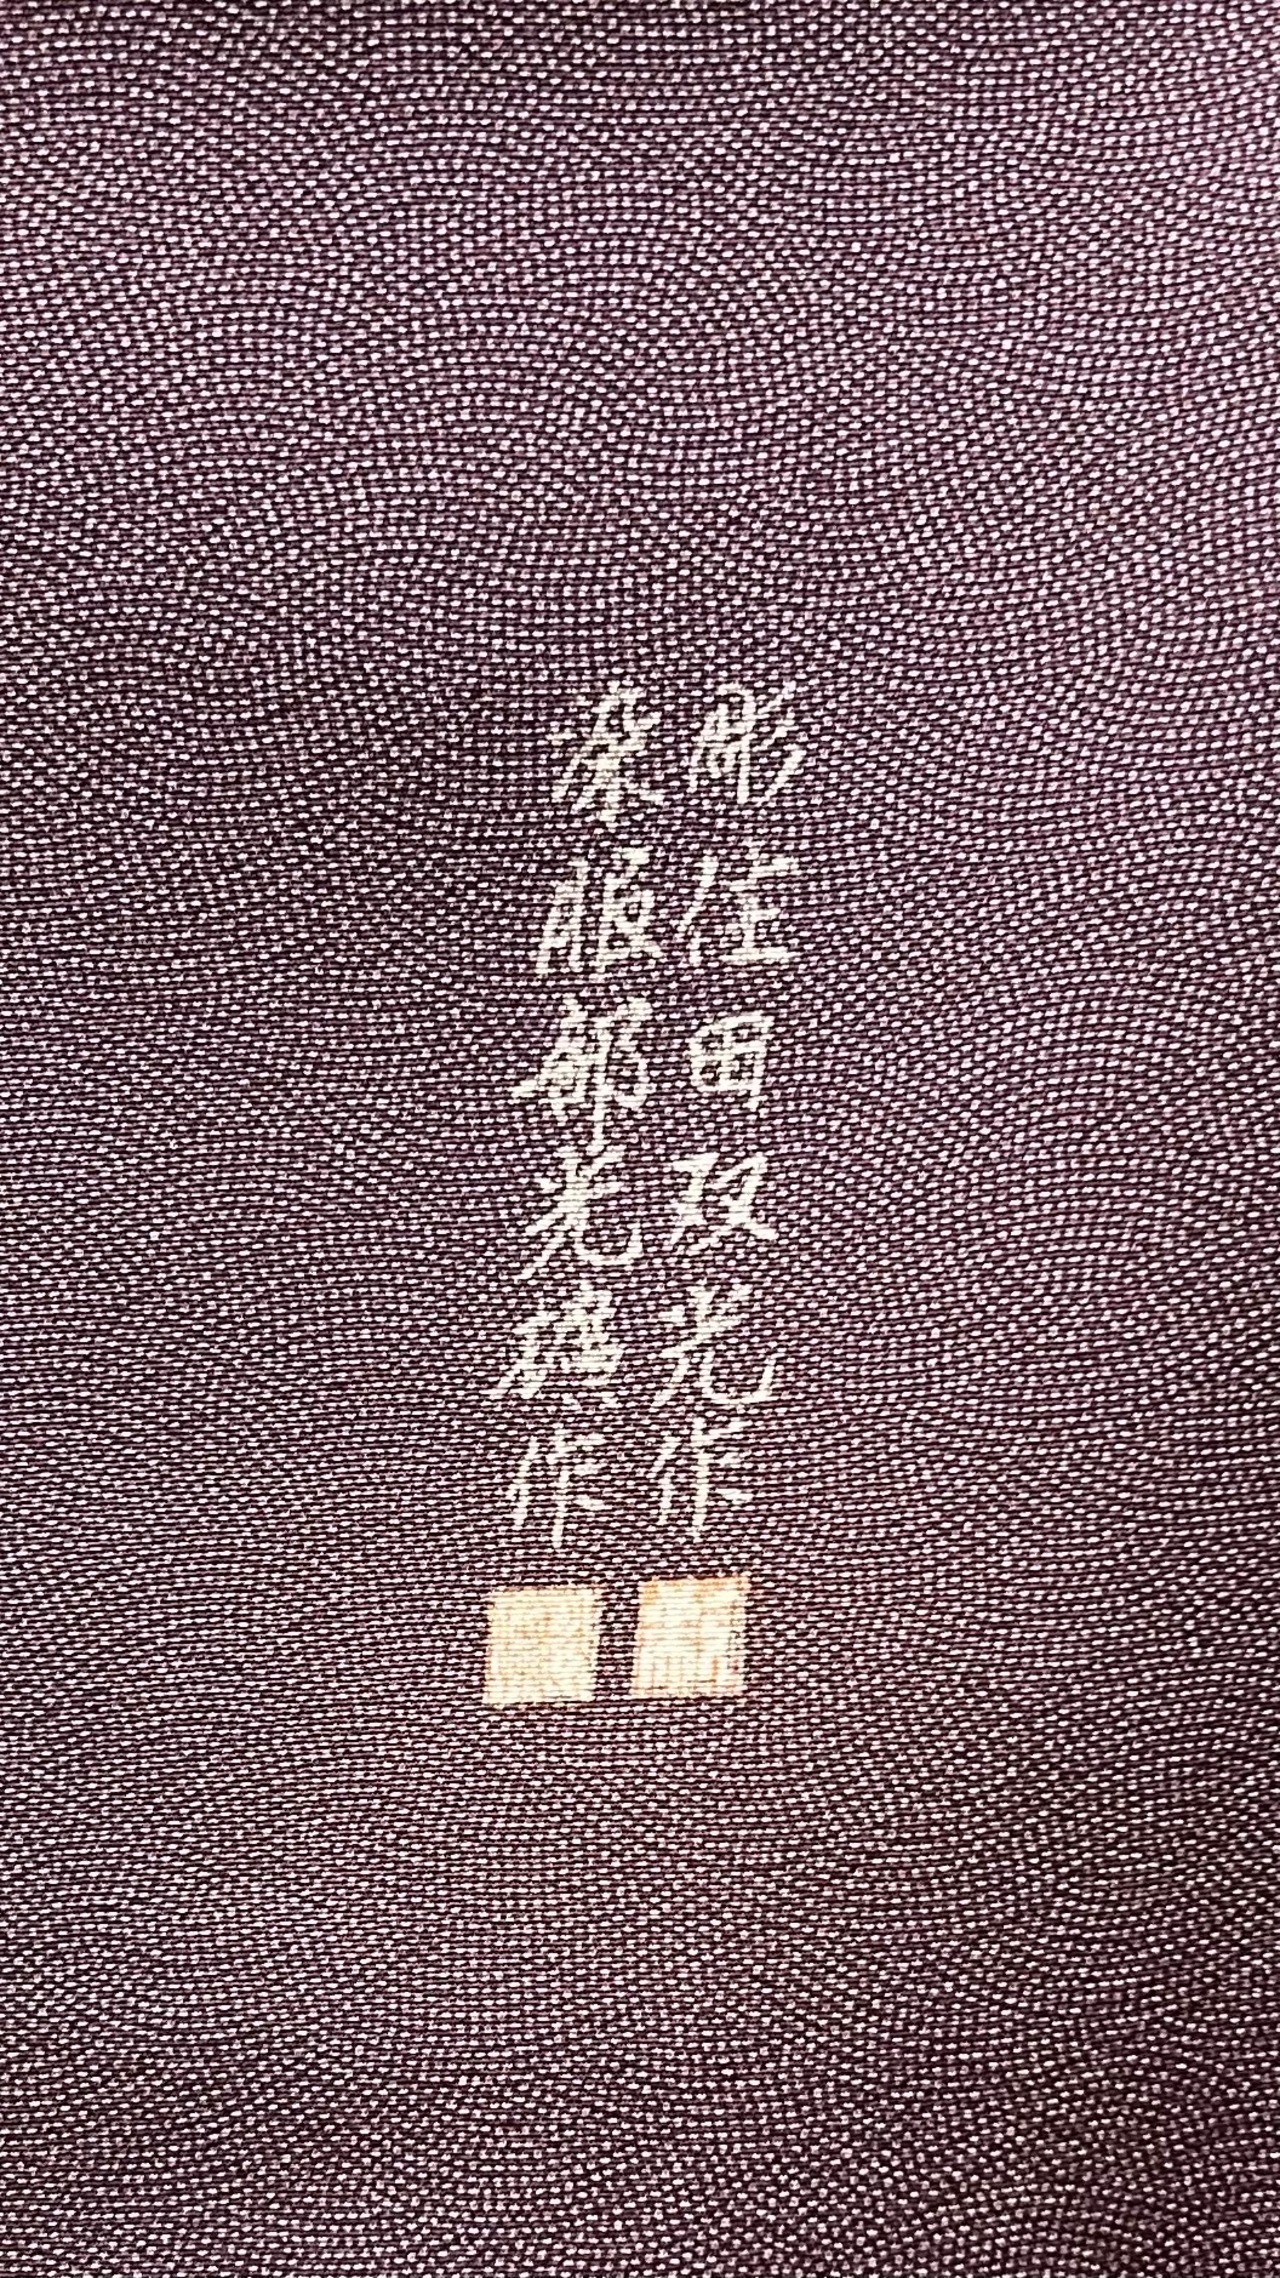 彫 住田双光作
染 服部光礦作